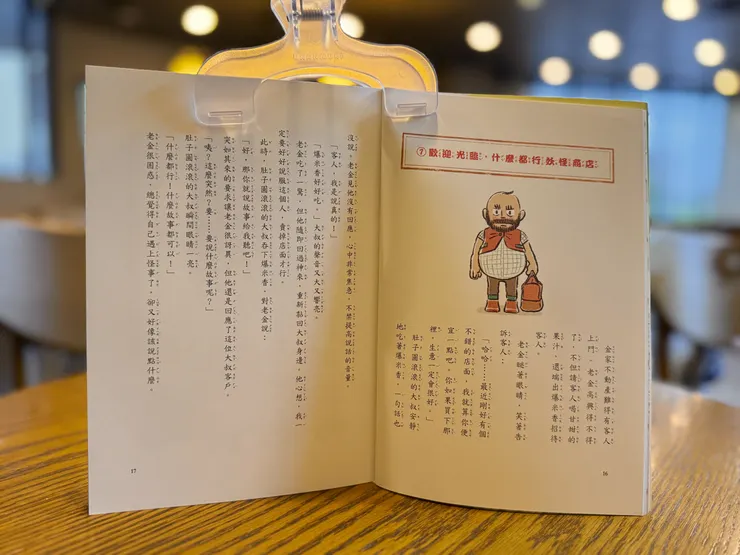 ①歡迎光臨,什麼都行妖怪商店
金家不動產難得有客人
上門,老金高興得不得
了,不但請客人喝甘甜的
果汁,還端出爆米香招待
客人。
老金瞇著眼睛,笑著告
訴客人:
「哈哈……最近剛好有個
不錯的店面,我就算你便
宜一點吧。你如果買下那
裡,生意一定會很好。」
肚子圓滾滾的大叔安靜
地吃著爆米香,一句話也
16
沒說,老金見他沒有回應,心中非常焦急,不禁提高說話的音量。
「客人,我是說真的!」
「爆米香好好吃。」大叔的聲音又大又響亮。
老金吃了一驚,但他隨即回過神來,重新黏回大叔身邊。他心想,我一
定要好好說服這個人,賣掉店面才行。
此時,肚子圓滾滾的大叔吞下爆米香,對老金說:
「好,那你就說故事給我聽吧!」
突如其來的要求讓老金很訝異,但他還是回應了這位大叔客戶。
「咦?這麼突然?要……要說什麼故事呢?」
肚子圓滾滾的大叔瞬間眼睛一亮。
「什麼都行!什麼故事都可以!」
老金很困惑,總覺得自己遇上怪事了,卻又好像該說點什麼。
17